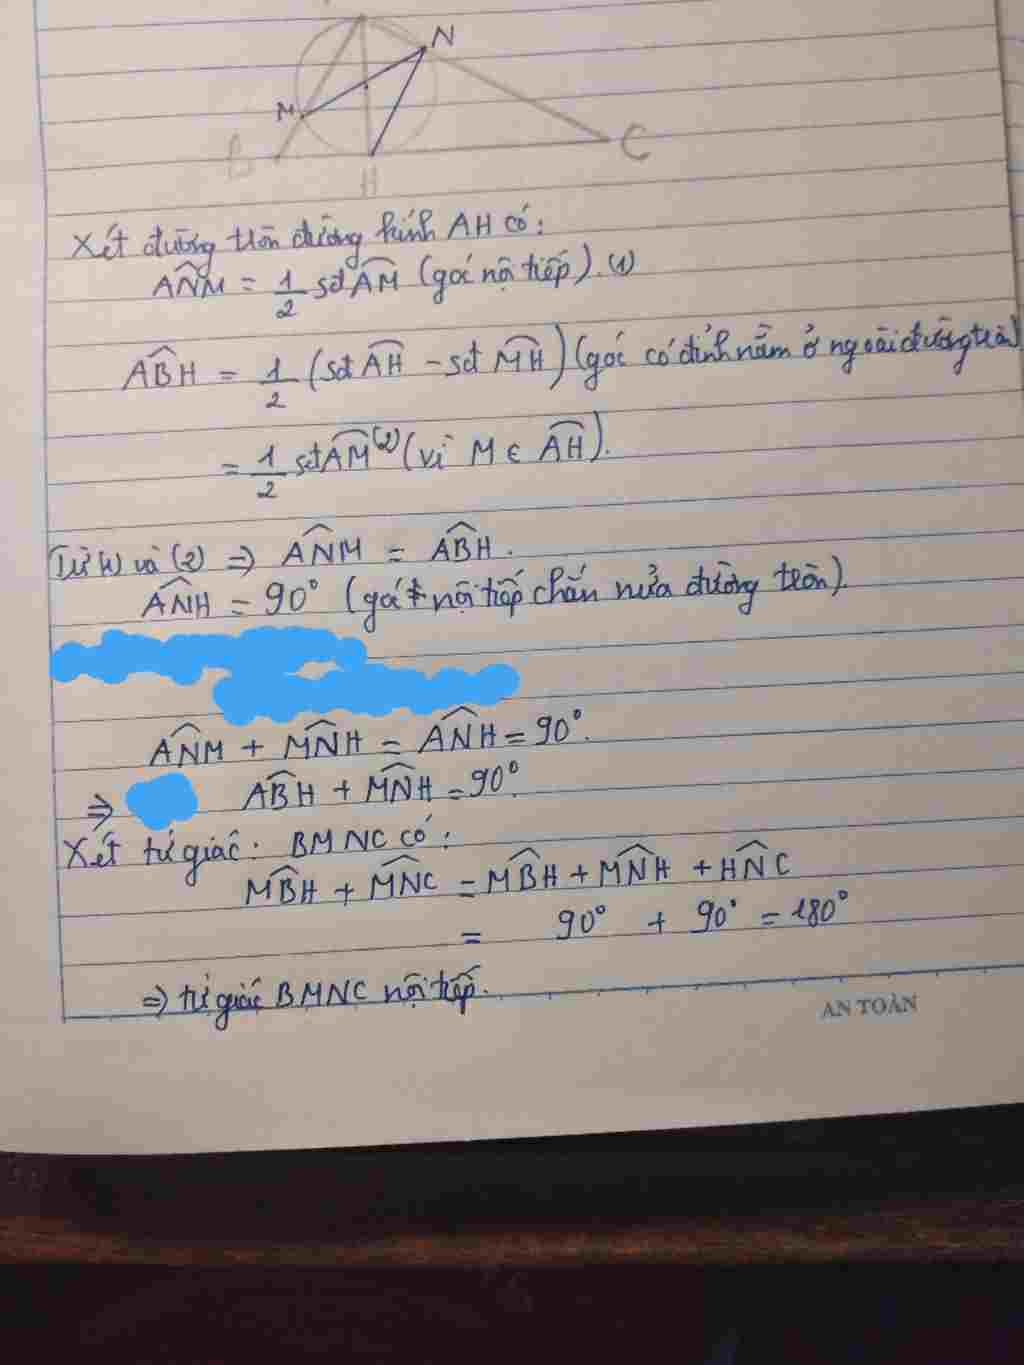 N
M
B
C
H
Xét đường tròn đường kính AH có:
ANM = 1/2 sđ AM (góc nội tiếp). (1)
ABH = 1/2 (sđ AH - sđ MH) (góc có đỉnh nằm ở ngoài đường tròn)
= 1/2 sđ AM (2) (vì M ∈ AH).
Từ (1) và (2) ⇒ ANM = ABH.
ANH = 90° (góc nội tiếp chắn nửa đường tròn).
ANM + MNH = ANH = 90°.
⇒ ABH + MNH = 90°.
Xét tứ giác: BMNC có:
MBH + MNC = MBH + MNH + HNC
= 90° + 90° = 180°
⇒ tứ giác BMNC nội tiếp.
AN TOÀN